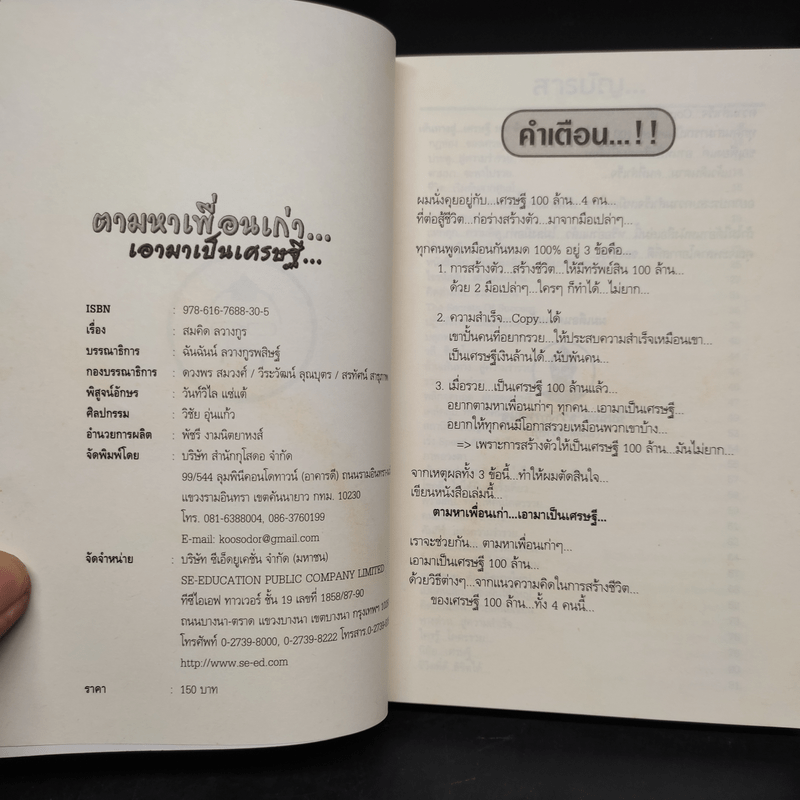 ตามหาเพื่อนเก่า...
เอามาเป็นเศรษฐี...
ISBN : 978-616-7688-30-5
เรื่อง : สมคิด ลวางกูร
บรรณาธิการ : ฉันฉันน์ ลวางกูรพสิษฐ์
กองบรรณาธิการ : ดวงพร สมวงศ์ / วีระวัฒน์ ลุณบุตร / สรทัศน์
พิสูจน์อักษร : วันทัวิไล แซ่แต้
ศิลปกรรม : วิชัย อุ่นแก้ว
อำนวยการผลิต : พัชรี งามนิตยาหงส์
จัดพิมพ์โดย : บริษัท สำนักกุโสดอ จำกัด
99/544 ลุมพินีคอนโดทาวน์ (อาคารดี) ถนนรามอินทรา
แขวงรามอินทรา เขตคันนายาว กทม. 10230
โทร. 081-6388004, 086-3760199
E-mail: koosodor@gmail.com
จัดจำหน่าย : บริษัท ซีเอ็ดยูเคชั่น จำกัด (มหาชน)
SE-EDUCATION PUBLIC COMPANY LIMITED
ทีซีไอเอฟ ทาวเวอร์ ชั้น 19 เลขที่ 1858/87-90
ถนนบางนา-ตราด แขวงบางนา เขตบางนา กรุงเทพฯ
โทรศัพท์ 0-2739-8000, 0-2739-8222 โทรสาร.
http://www.se-ed.com
ราคา : 150 บาท
คำเตือน...!!
ผมนั่งคุยอยู่กับ...เศรษฐี 100 ล้าน...4 คน...
ที่ต่อสู้ชีวิต...ก่อร่างสร้างตัว...มาจากมือเปล่าๆ...
ทุกคนพูดเหมือนกันหมด 100% อยู่ 3 ข้อคือ...
1. การสร้างตัว...สร้างชีวิต...ให้มีทรัพย์สิน 100 ล้าน...
ด้วย 2 มือเปล่าๆ...ใครๆ ก็ทำได้...ไม่ยาก...
2. ความสำเร็จ...Copy...ได้
เขาปั้นคนที่อยากรวย...ให้ประสบความสำเร็จเหมือนเขา...
เป็นเศรษฐีเงินล้านได้...นับพันคน...
3. เมื่อรวย...เป็นเศรษฐี 100 ล้านแล้ว...
อยากตามหาเพื่อนเก่าๆ ทุกคน...เอามาเป็นเศรษฐี...
อยากให้ทุกคนมีโอกาสรวยเหมือนพวกเขาบ้าง...
=> เพราะการสร้างตัวให้เป็นเศรษฐี 100 ล้าน...มันไม่ยาก...
จากเหตุผลทั้ง 3 ข้อนี้...ทำให้ผมตัดสินใจ...
เขียนหนังสือเล่มนี้...
ตามหาเพื่อนเก่า...เอามาเป็นเศรษฐี...
เราจะช่วยกัน... ตามหาเพื่อนเก่าๆ...
เอามาเป็นเศรษฐี 100 ล้าน...
ด้วยวิธีต่างๆ...จากแนวความคิดในการสร้างชีวิต...
ของเศรษฐี 100 ล้าน...ทั้ง 4 คนนี้...